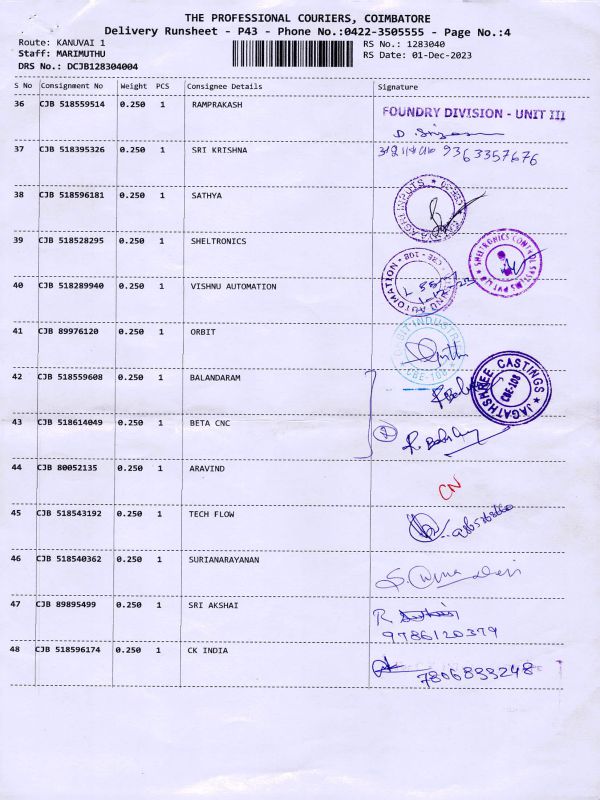 THE PROFESSIONAL COURIERS, COIMBATORE
Delivery Runsheet - P43 - Phone No.:0422-3505555 - Page No.:4
Route: KANUVAI 1
RS No.: 1283040
Staff: MARIMUTHU
RS Date: 01-Dec-2023
DRS No.: DCJB128304004
S No Consignment No Weight PCS Consignee Details Signature
36 CJB 518559514 0.250 1 RAMPRAKASH
FOUNDRY DIVISION - UNIT III
37 CJB 518395326 0.250 1 SRI KRISHNA
9363357676
38 CJB 518596181 0.250 1 SATHYA
39 CJB 518528295 0.250 1 SHELTRONICS
SHELTRONICS CONTROL SYSTEMS PVT LTD
40 CJB 518289940 0.250 1 VISHNU AUTOMATION
AUTOMATION
41 CJB 89976120 0.250 1 ORBIT
ORBIT INDUSTRI
42 CJB 518559608 0.250 1 BALANDARAM
JAGATHSHREE CASTINGS
CBE-108
43 CJB 518614049 0.250 1 BETA CNC
44 CJB 80052135 0.250 1 ARAVIND
CN
45 CJB 518543192 0.250 1 TECH FLOW
46 CJB 518540362 0.250 1 SURIANARAYANAN
47 CJB 89895499 0.250 1 SRI AKSHAI
9786120379
48 CJB 518596174 0.250 1 CK INDIA
7806899248